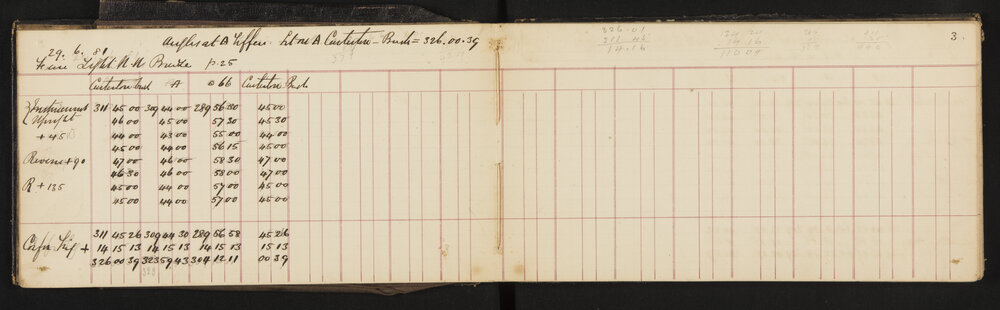 Angles at A Tiffen. Set on A Carterton - Bush = 326.00.39
29. 6. 81
Fine Light N.W Breeze p.25
3.
326.01
311.45
14.16
14.16
110.00
Carterton Bush A 066 Carterton Bush
Instrument 311 45 00 309 44 00 289 56 30 45 00
Upright 46 00 45 00 57 30 45 30
+ 45 44 00 43 00 55 00 44 00
45 00 44 00 56 15 45 00
Reverse + 90 47 00 46 00 58 30 47 00
46 30 46 00 58 00 47 00
R + 135 45 00 44 00 57 00 45 00
45 00 44 00 57 00 45 00
311 45 26 309 44 30 289 56 58 45 26
+ 14 15 13 14 15 13 14 15 13 15 13
326 00 39 323 59 43 304 12 11 00 39
323